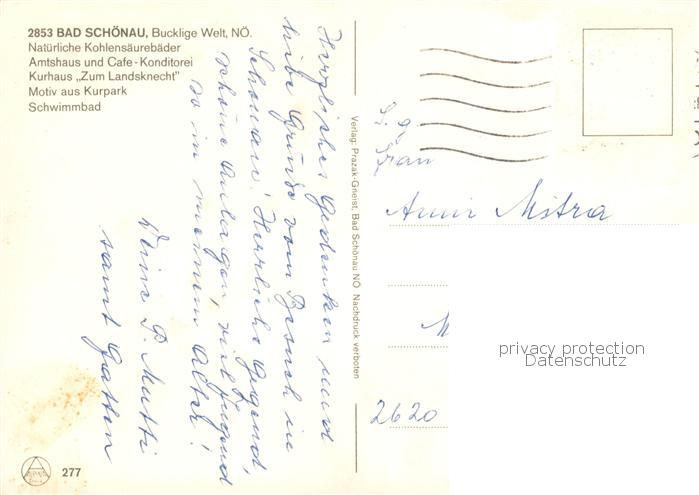 2853 BAD SCHÖNAU, Bucklige Welt, NÖ.
Natürliche Kohlensäurebäder
Amtshaus und Cafe-Konditorei
Kurhaus „Zum Landsknecht"
Motiv aus Kurpark
Schwimmbad
Herzliches Gedenken und
liebe Grüße vom Besuch in
Schönau! Herrliche Gegend,
schöne Anlagen, viel Jugend
so in meinem Alter!
Deine P. Mutti
samt Gatten
Verlag: Prazak-Gneist, Bad Schönau NÖ Nachdruck verboten
S. g.
Frau
Anni Mitra
M
2620
privacy protection
Datenschutz
277